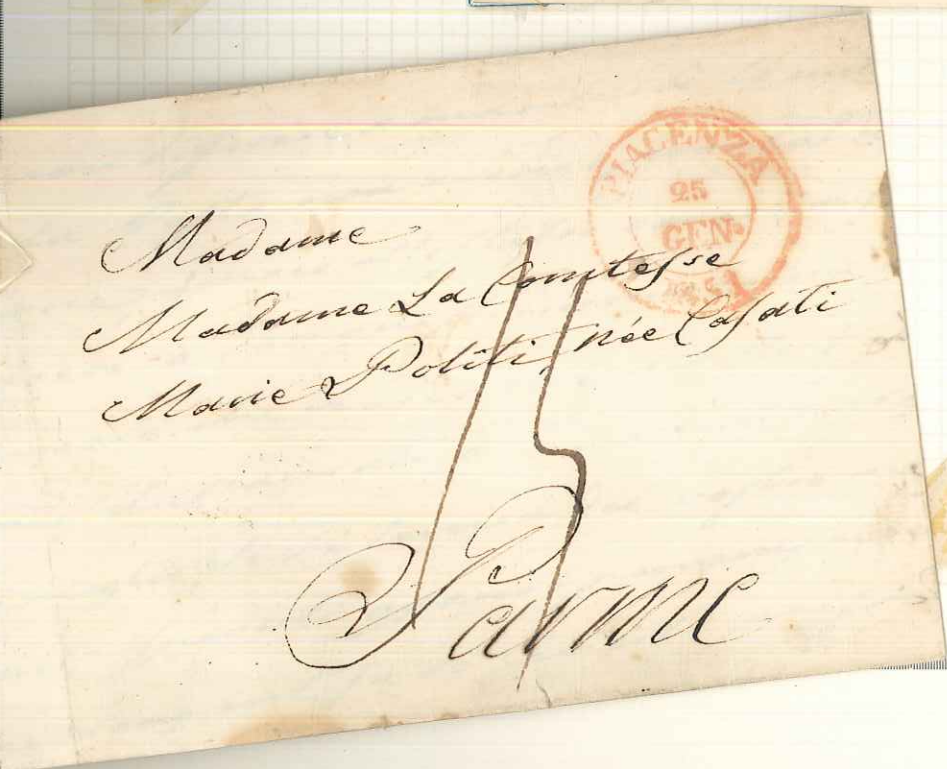 PIACENZA
25
GEN.
Madame
Madame La Comtesse
Marie Politi, née Casati
15
Parme